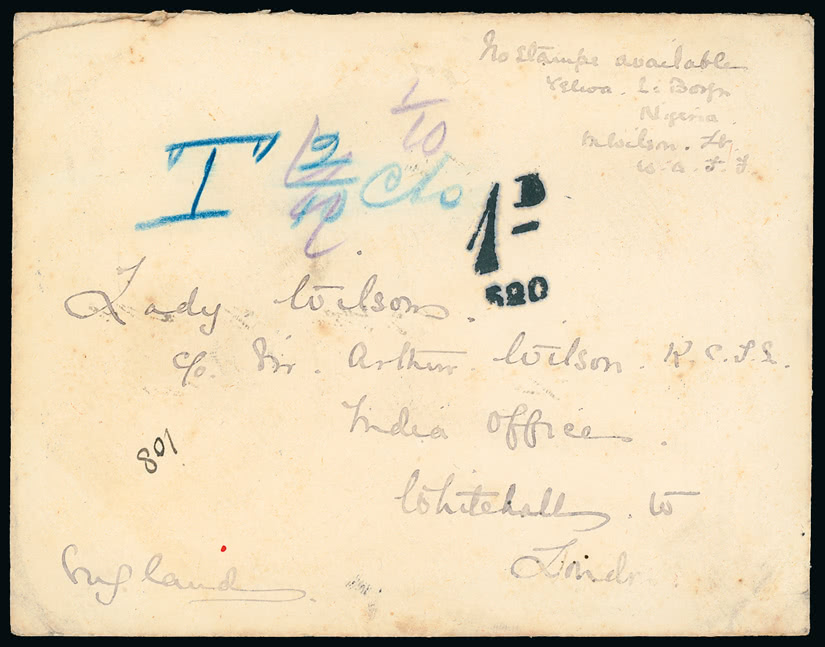 No stamps available
Yelwa. L. Borgu
Nigeria
M Wilson. Lt.
W. A. F. F.
1/10
T 2/10 Cto
1D
520
Lady Wilson.
c/o. Sir. Arthur. Wilson. K.C.I.E.
India Office.
801
Whitehall. W
London
England.